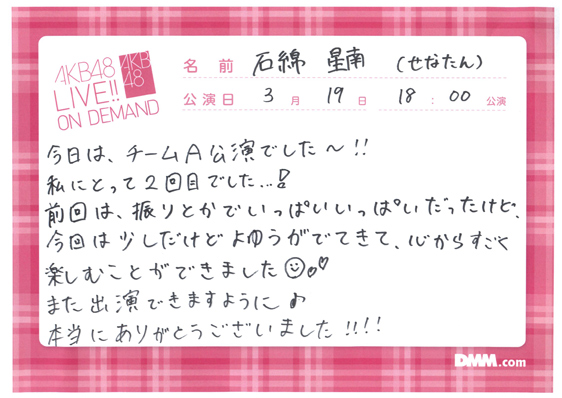 AKB48
LIVE!!
ON DEMAND
AKB
48
名前 石綿 星南 (せなたん)
公演日 3月 19日 18:00 公演
今日は、チームA公演でした〜!!
私にとって2回目でした...!
前回は、振りとかでいっぱいいっぱいだったけど、
今回は少しだけどよゆうがでてきて、心からすごく
楽しむことができました
また出演できますように♪
本当にありがとうございました!!!!
DMM.com